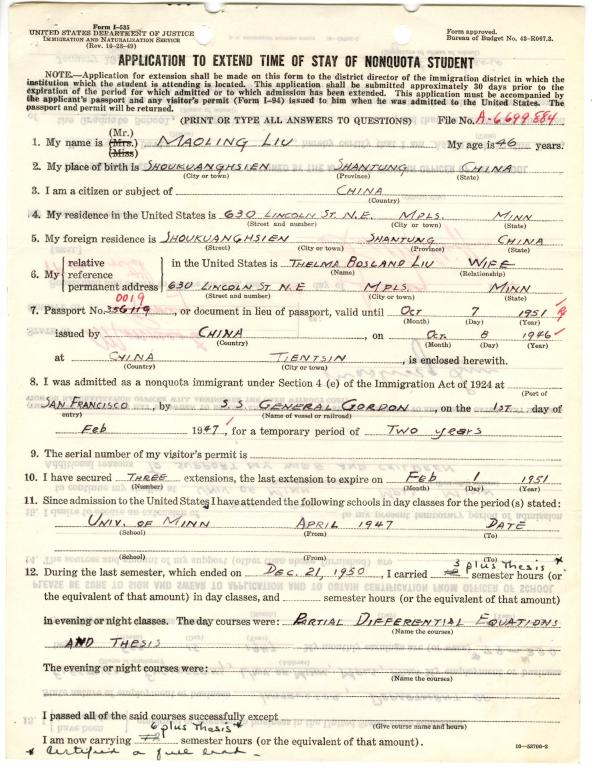 Form I-535
UNITED STATES DEPARTMENT OF JUSTICE
IMMIGRATION AND NATURALIZATION SERVICE
(Rev. 10-28-49)
Form approved.
Bureau of Budget No. 43-R067.3.
APPLICATION TO EXTEND TIME OF STAY OF NONQUOTA STUDENT
NOTE.—Application for extension shall be made on this form to the district director of the immigration district in which the
institution which the student is attending is located. This application shall be submitted approximately 30 days prior to the
expiration of the period for which admitted or to which admission has been extended. This application must be accompanied by
the applicant's passport and any visitor's permit (Form I-94) issued to him when he was admitted to the United States. The
passport and permit will be returned.
(PRINT OR TYPE ALL ANSWERS TO QUESTIONS) File No. A-6699884
(Mr.)
1. My name is (Mrs.) MAOLING LIU My age is 46 years.
(Miss)
2. My place of birth is SHOUKUANGHSIEN SHANTUNG CHINA
(City or town) (Province) (State)
3. I am a citizen or subject of CHINA
(Country)
4. My residence in the United States is 630 LINCOLN ST. N.E. MPLS. MINN
(Street and number) (City or town) (State)
5. My foreign residence is SHOUKUANGHSIEN SHANTUNG CHINA
(Street) (City or town) (State)
relative in the United States is THELMA BOSLAND LIU WIFE
6. My reference (Name) (Relationship)
permanent address 630 LINCOLN ST. N.E MPLS. MINN
(Street and number) (City or town) (State)
0019
7. Passport No. 356119, or document in lieu of passport, valid until OCT 7 1951
(Month) (Day) (Year)
issued by CHINA, on OCT. 8 1946
(Country) (Month) (Day) (Year)
at CHINA TIENTSIN, is enclosed herewith.
(Country) (City or town)
8. I was admitted as a nonquota immigrant under Section 4 (e) of the Immigration Act of 1924 at
(Port of
SAN FRANCISCO, by S.S. GENERAL GORDON, on the 1ST day of
entry) (Name of vessel or railroad)
Feb 1947, for a temporary period of TWO years
9. The serial number of my visitor's permit is
10. I have secured THREE extensions, the last extension to expire on Feb 1 1951
(Number) (Month) (Day) (Year)
11. Since admission to the United States I have attended the following schools in day classes for the period(s) stated:
UNIV. OF MINN APRIL 1947 DATE
(School) (From) (To)
(School) (From) (To)
3 plus Thesis *
12. During the last semester, which ended on DEC. 21, 1950, I carried semester hours (or
the equivalent of that amount) in day classes, and semester hours (or the equivalent of that amount)
in evening or night classes. The day courses were: PARTIAL DIFFERENTIAL EQUATIONS
(Name the courses)
AND THESIS
The evening or night courses were:
(Name the courses)
I passed all of the said courses successfully except
(Give course name and hours)
6 plus Thesis *
I am now carrying semester hours (or the equivalent of that amount).
* Certified a full load. 16—53700-2